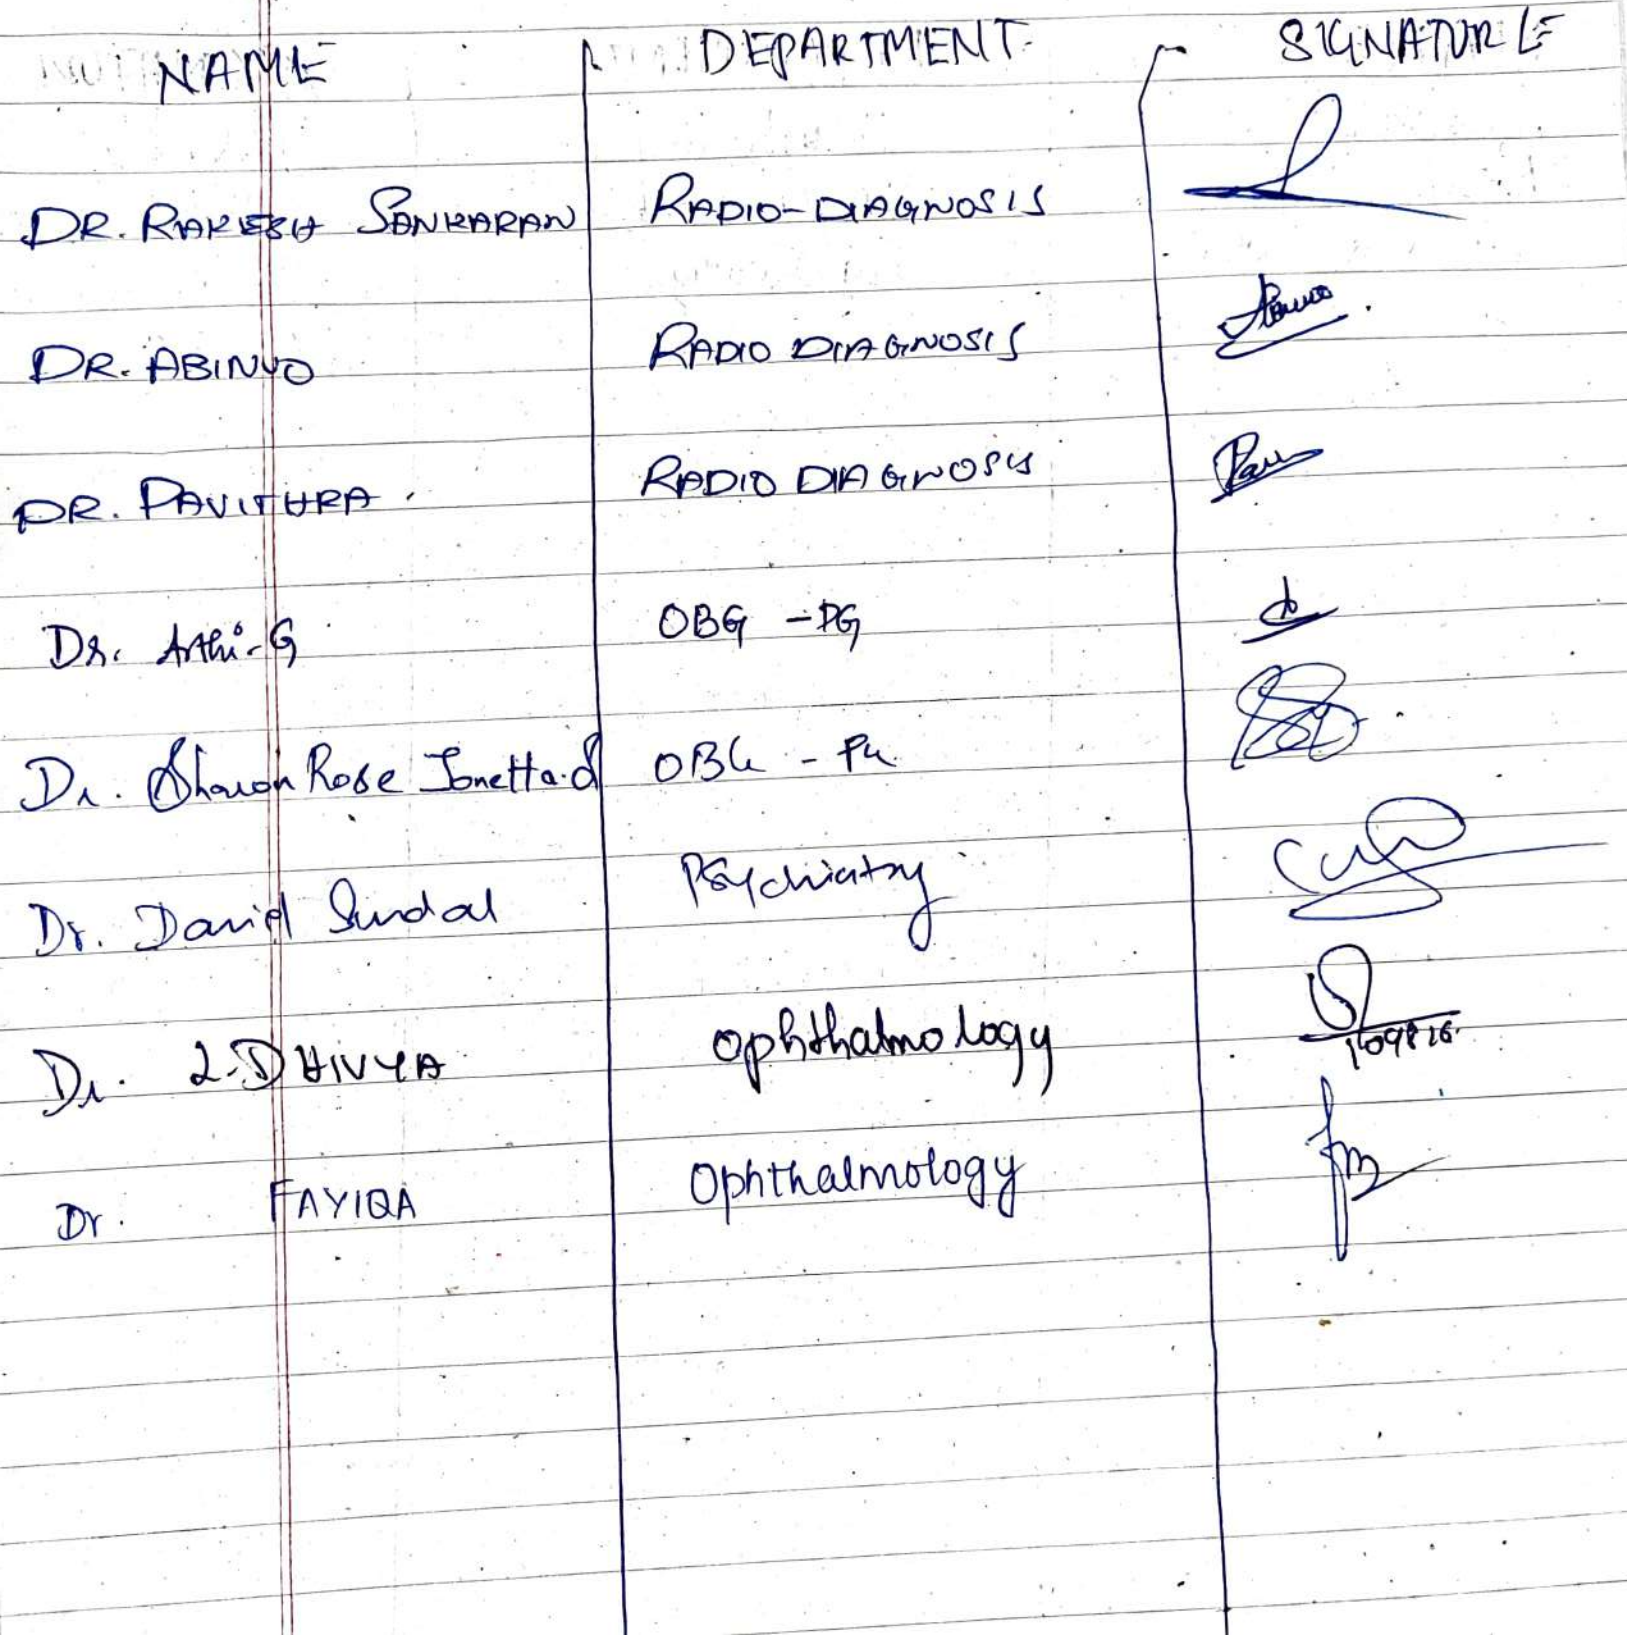 NAME DEPARTMENT SIGNATURE
DR. RAKESH SANKARAN RADIO-DIAGNOSIS
DR. ABINVO RADIO DIAGNOSIS
DR. PAVITHRA RADIO DIAGNOSIS
Dr. Arthi.G OBG - PG
Dr. Sharon Rose Jonetta.J OBG - PG
Dr. Daniel Psychiatry
Dr. L.DHIVYA Ophthalmology
109816
Dr. FAYIQA Ophthalmology